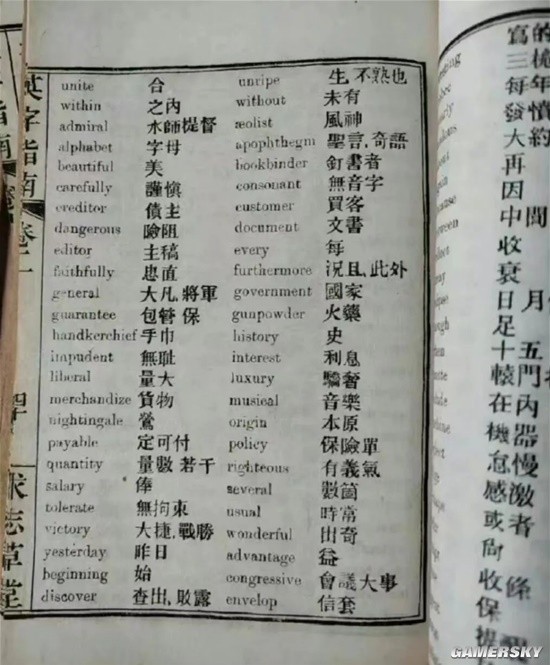 英字指南
卷二
求志草堂
unite 合 unripe 生,不熟也
within 之內 without 未有
admiral 水師提督 æolist 風神
alphabet 字母 apophthegm 聖言,奇語
beautiful 美 bookbinder 釘書者
carefully 謹慎 consonant 無音字
creditor 債主 customer 買客
dangerous 險阻 document 文書
editor 主稿 every 每
faithfully 忠直 furthermore 況且,此外
general 大凡,將軍 government 國家
guarantee 包管,保 gunpowder 火藥
handkerchief 手巾 history 史
impudent 無耻 interest 利息
liberal 量大 luxury 驕奢
merchandize 貨物 musical 音樂
nightingale 鶯 origin 本原
payable 定可付 policy 保險單
quantity 量數,若干 righteous 有義氣
salary 俸 several 數箇
tolerate 無拘束 usual 時常
victory 大捷,戰勝 wonderful 出奇
yesterday 昨日 advantage 益
beginning 始 congressive 會議大事
discover 查出,敗露 envelop 信套
寫三每發大再因中收衰日足十轅在機怠感或尙收保
的桅年慣約
間
月
五門內器慢激者
條
GAMERSKY